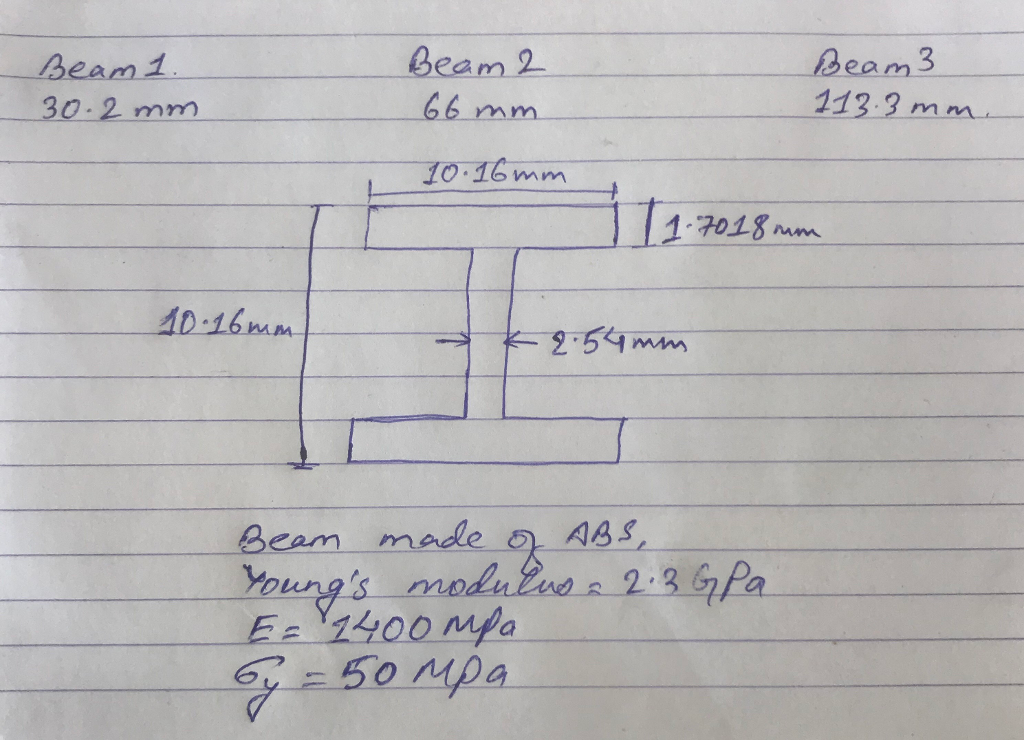 Beam 1. Beam 2 Beam 3
30.2 mm 66 mm 113.3 mm.
10.16mm
1.7018mm
10.16mm
2.54mm
Beam made of ABS,
Young's modulus = 2.3 GPa
E = 1400 MPa
σy = 50 MPa